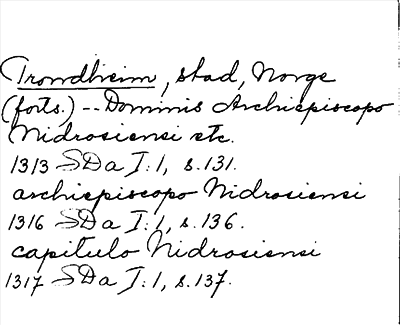 Trondheim, stad, Norge
(forts.) -- Dominis Archiepiscopo
Nidrosiensi etc.
1313 SDa I:1, s.131.
archiepiscopo Nidrosiensi
1316 SDa I:1, s.136.
capitulo Nidrosiensi
1317 SDa I:1, s.137.